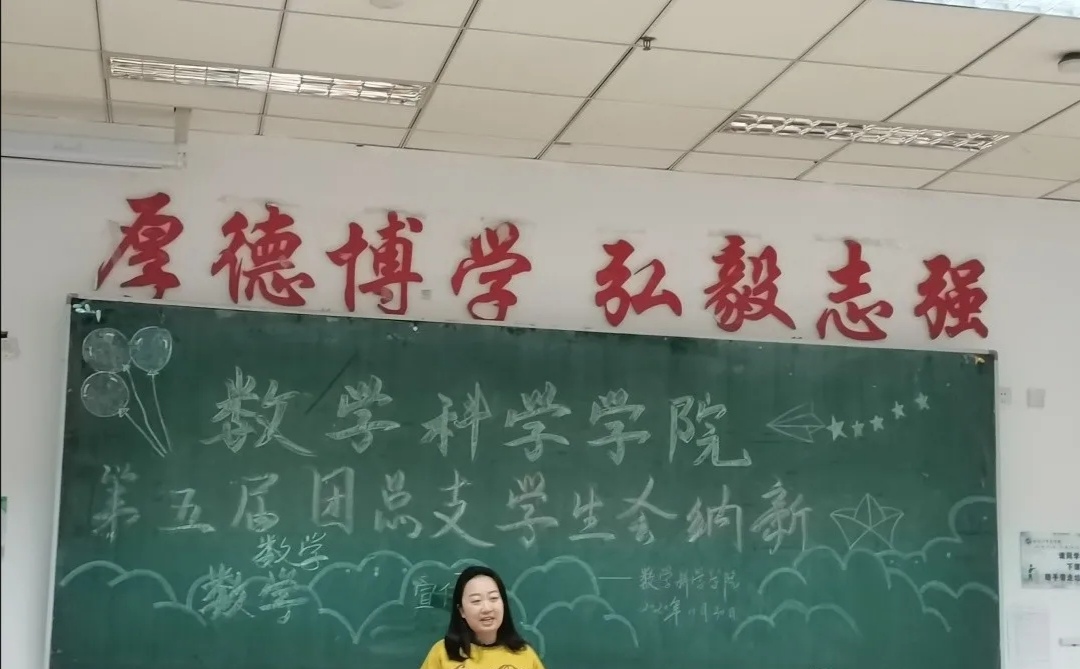 厚德博学 弘毅志强
数学科学学院
第五届团总支学生会纳新
数学
数学
宣
——数学科学学院